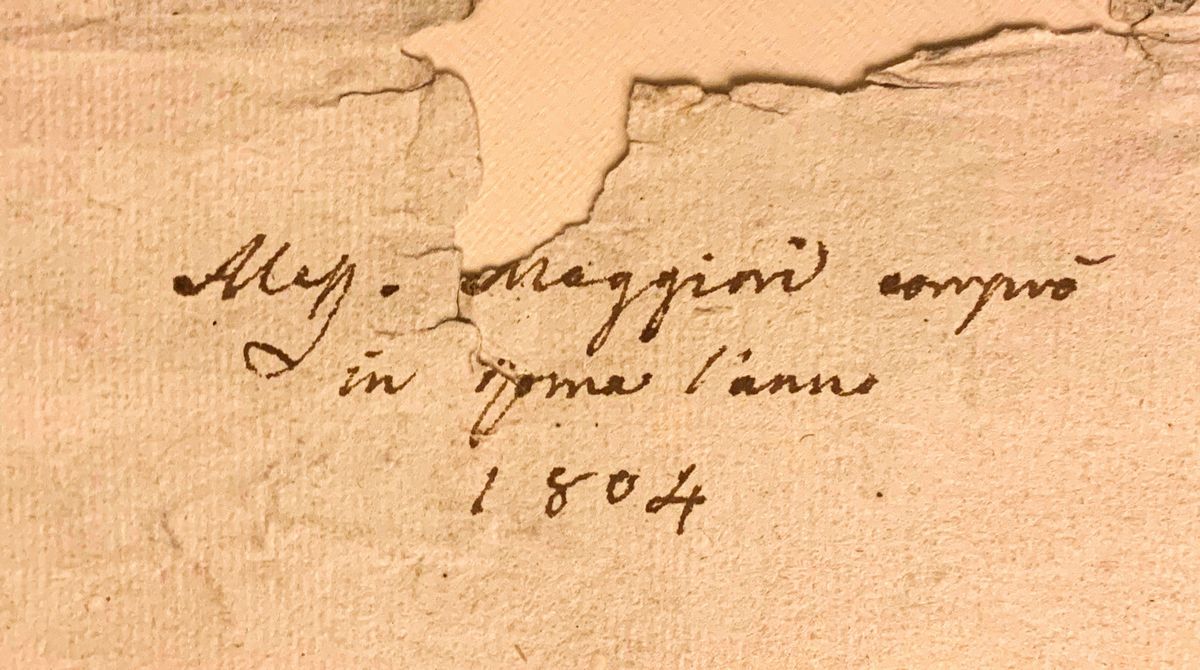 Aless. Maggiori comprò
in Roma l'anno
1804